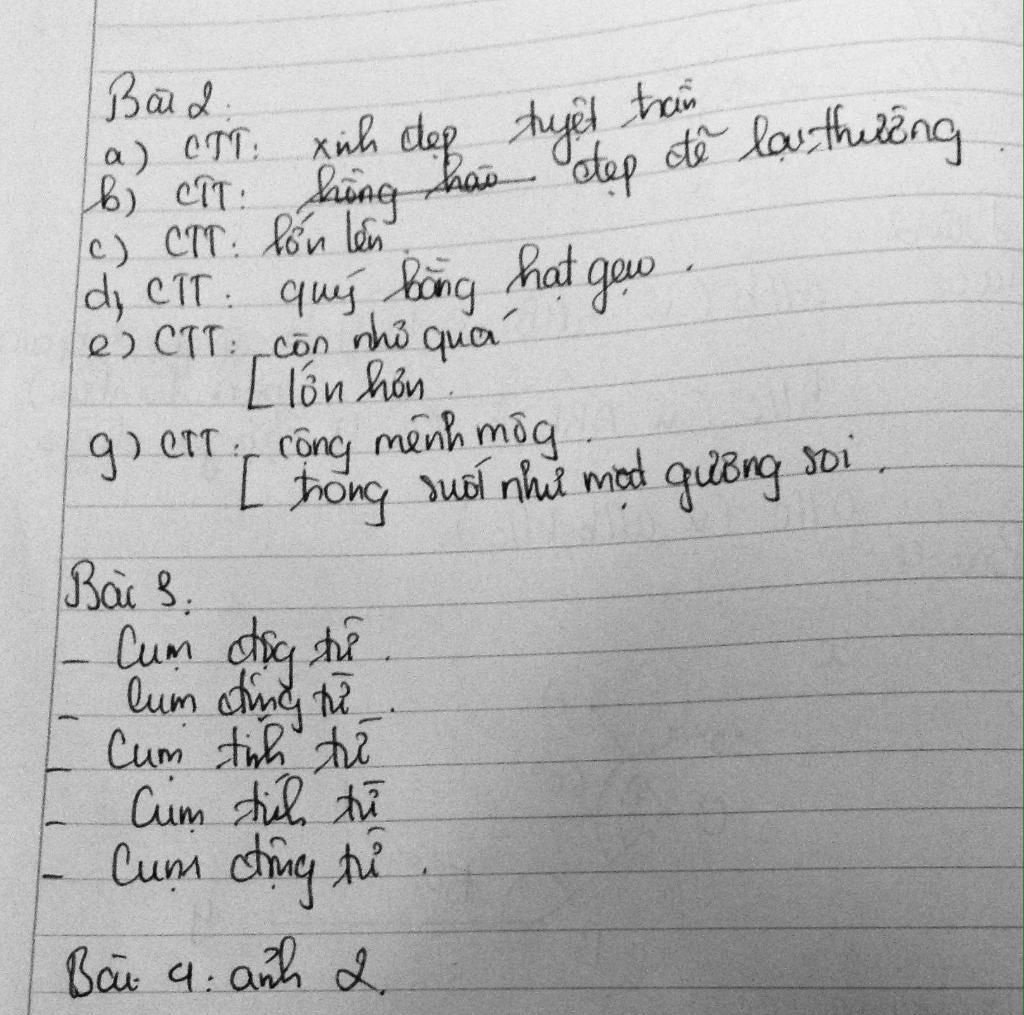 Bài 2:
a) CTT: xinh đẹp tuyệt trần
b) CTT: hồng hào đẹp đẽ lạ thường.
c) CTT: lớn lên.
d, CTT: quý bằng hạt gạo.
e) CTT: còn nhỏ quá
[ lớn hơn.
g) CTT: rộng mênh môg.
[ trong suốt như mặt gương soi.
Bài 3:
- Cụm độg từ.
- Cụm động từ.
- Cụm tính từ
- Cụm tính từ
- Cụm động từ.
Bài 4: ảnh 2.